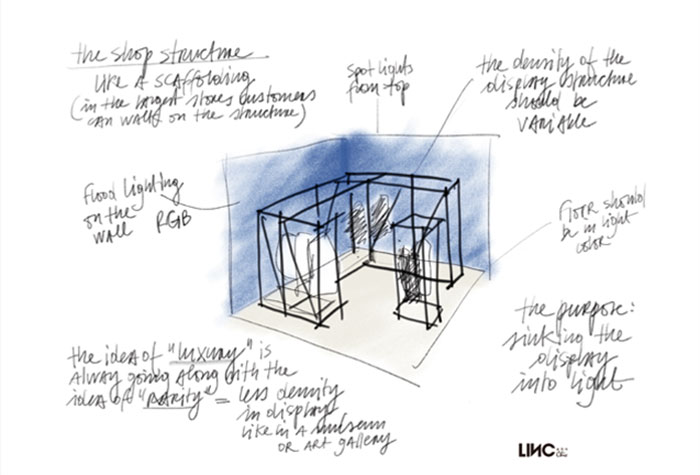 the shop structure
like a scaffolding
(in the largest stores customers
can walk on the structure)
spot lights
from top
the density of the
display structure
should be
variable
flood lighting
on the
wall RGB
floor should
be in light
color
the purpose:
sinking the
display
into light
the idea of "luxury" is
alway going along with the
idea of "rarity" = less density
in display
like in a museum
or art gallery
LINC